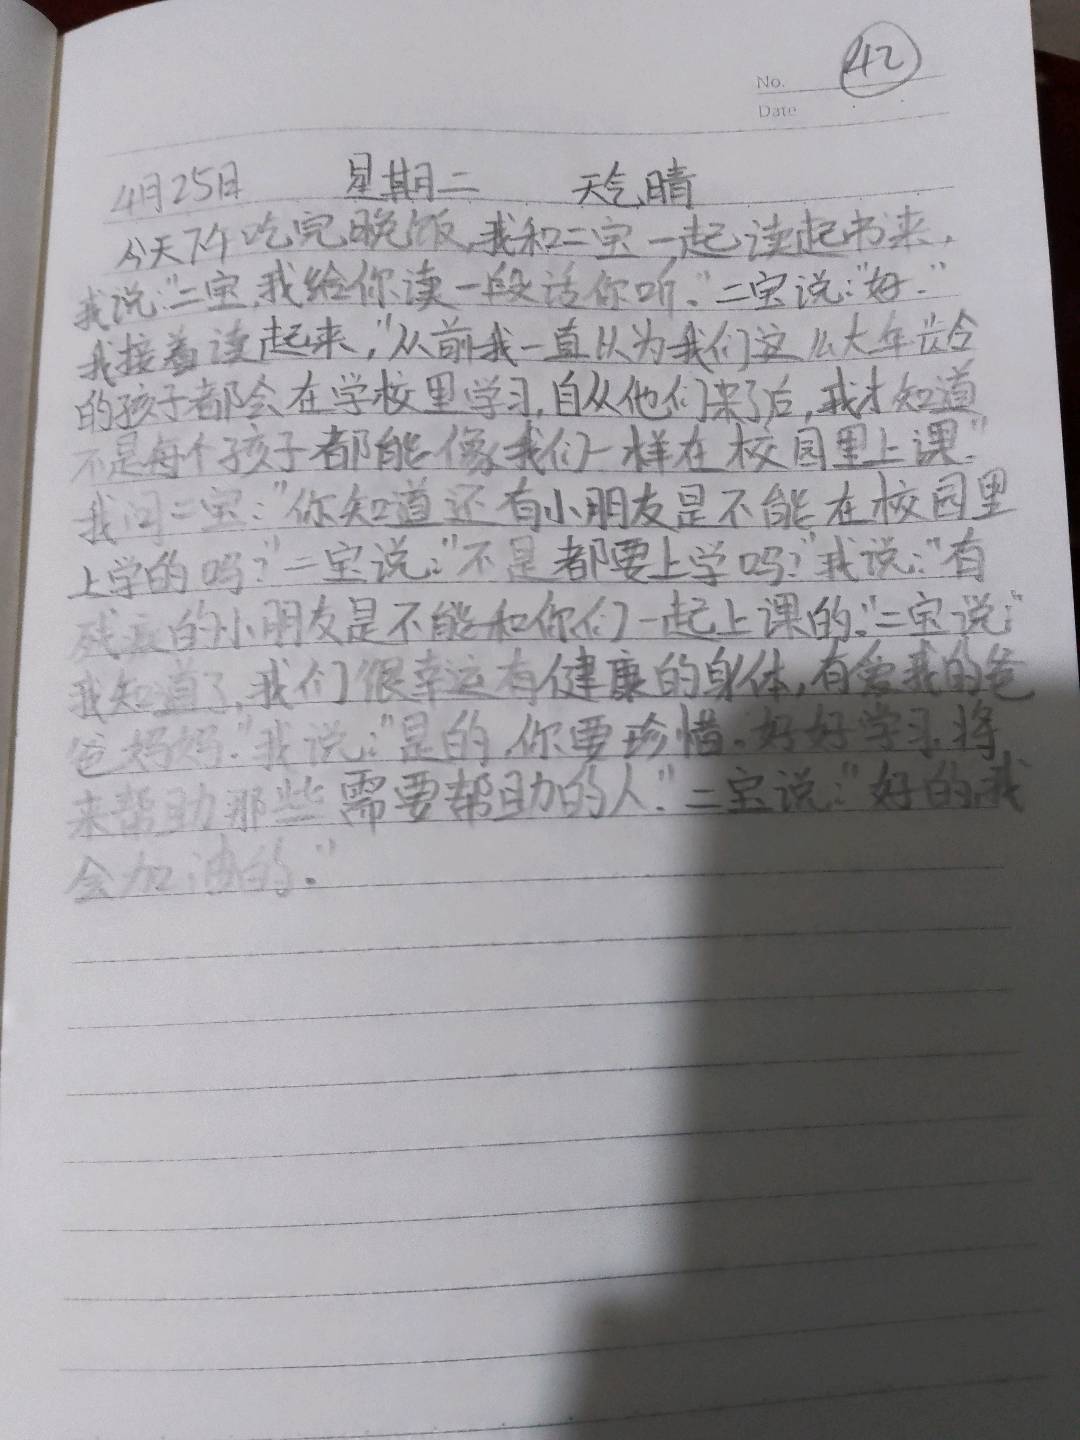 42
No.
Date
4月25日 星期二 天气晴
今天下午吃完晚饭,我和二宝一起读起书来,
我说:"二宝,我给你读一段话你听."二宝说:"好."
我接着读起来,"从前我一直以为我们这么大年龄
的孩子都会在学校里学习,自从他们来了后,我才知道
不是每个孩子都能像我们一样在校园里上课."
我问二宝:"你知道还有小朋友是不能在校园里
上学的吗?"二宝说:"不是都要上学吗?"我说:"有
残疾的小朋友是不能和你们一起上课的."二宝说:"
我知道了,我们很幸运有健康的身体,有爱我的爸
爸妈妈."我说:"是的,你要珍惜.好好学习.将
来帮助那些需要帮助的人."二宝说:"好的,我
会加油的."